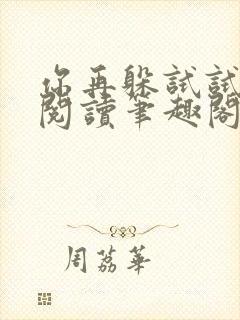 你再躲試試
閱讀筆趣閣
周荔華